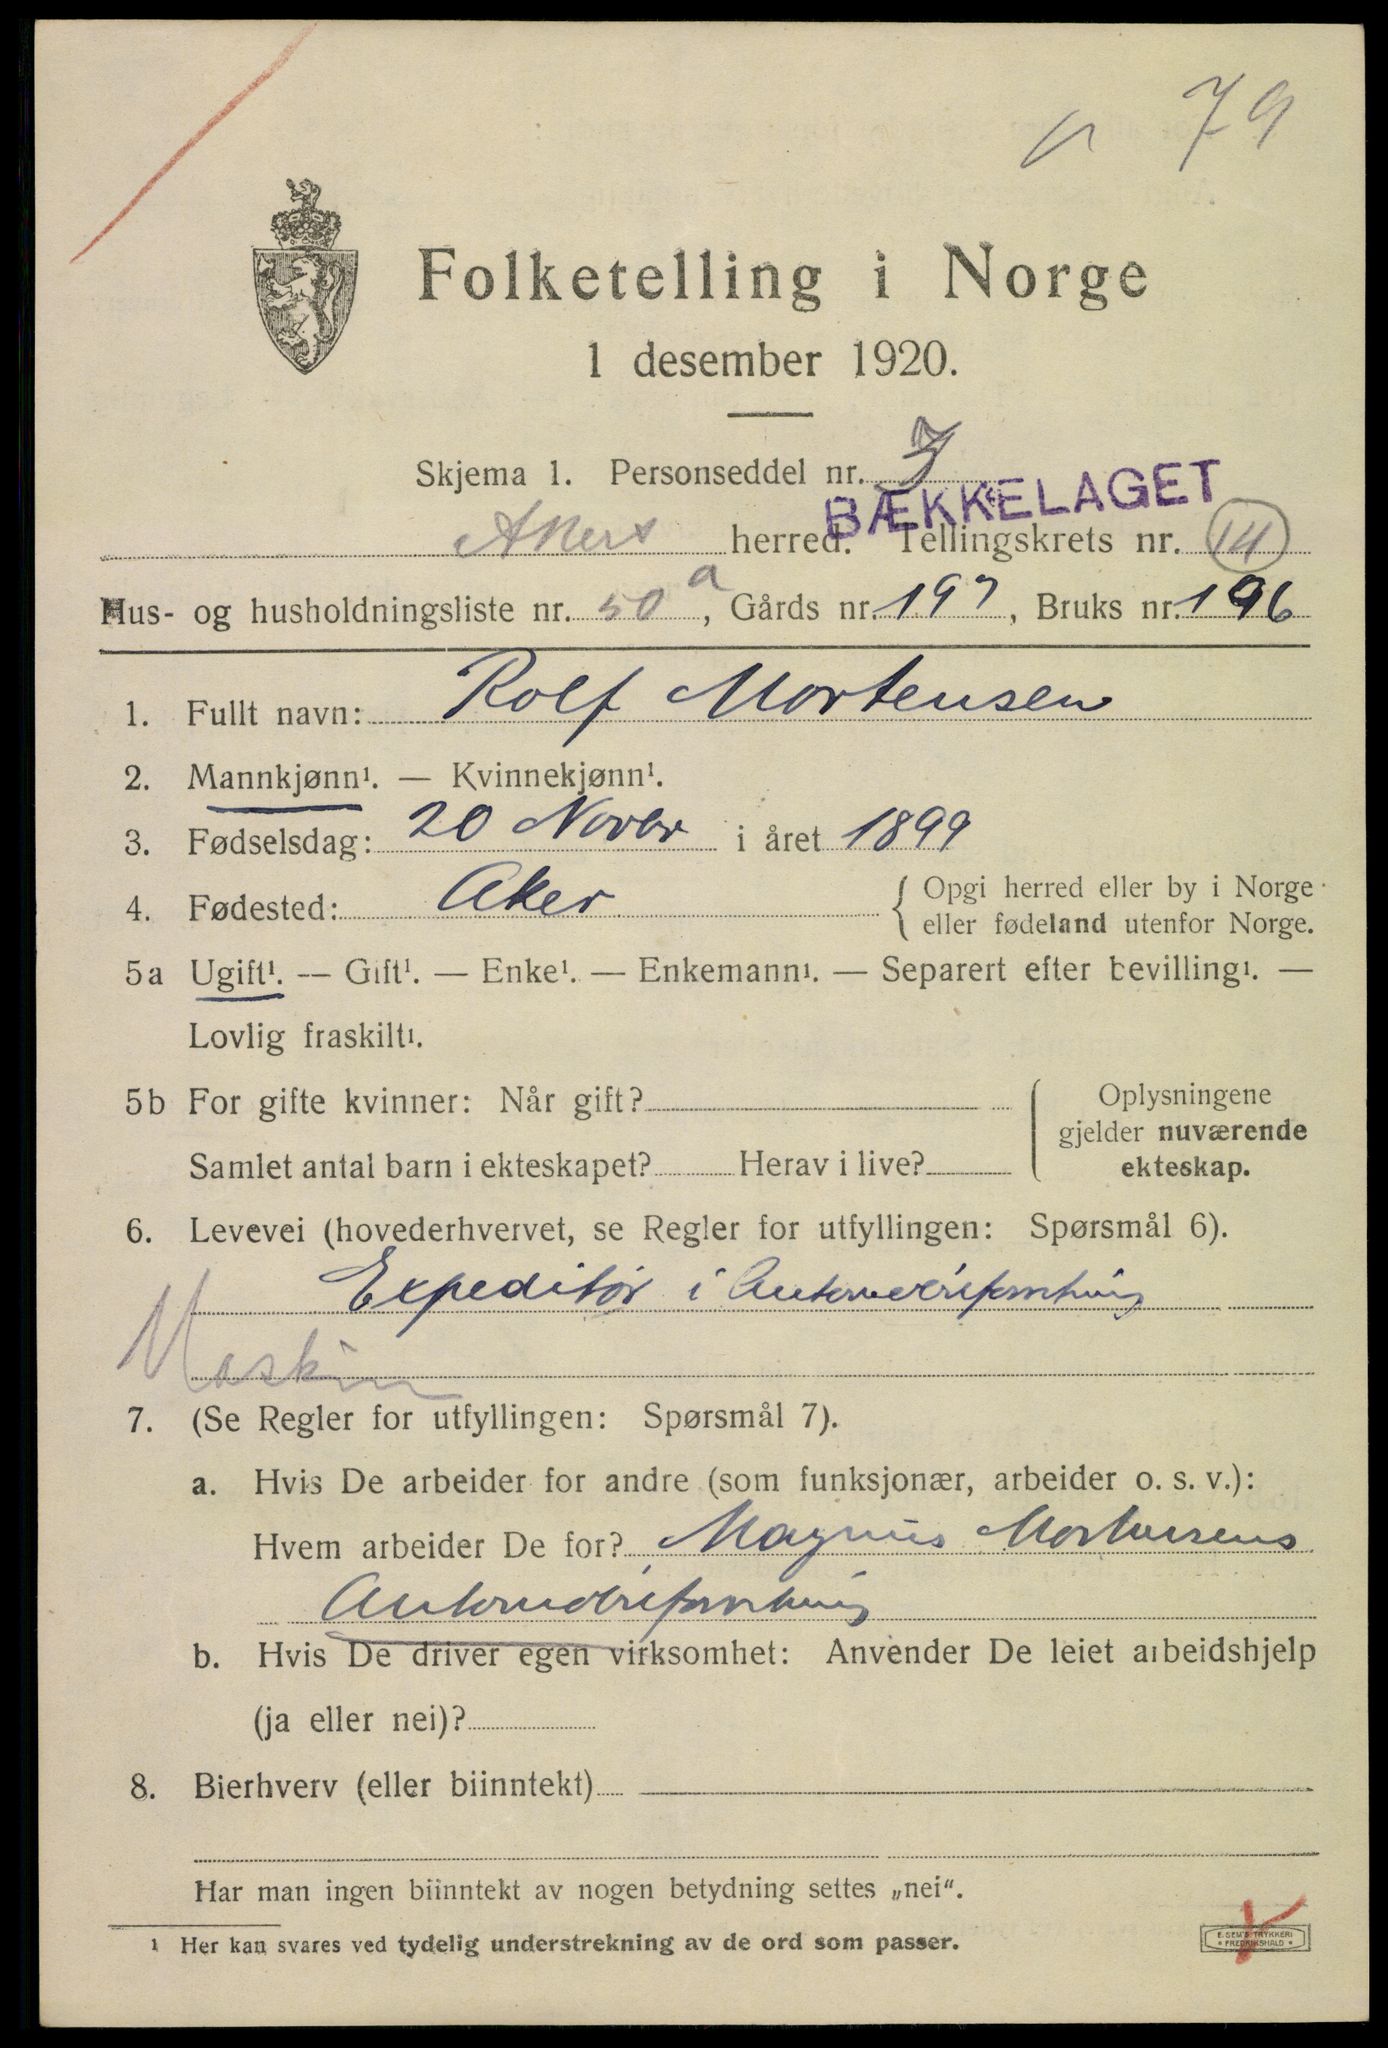 79
Folketelling i Norge
1 desember 1920.
Skjema 1. Personseddel nr.
BÆKKELAGET
Akers herred. Tellingskrets nr. 14
Hus- og husholdningsliste nr. 50a, Gårds nr. 197, Bruks nr. 196
1. Fullt navn: Rolf Mortensen
2. Mannkjønn¹. — Kvinnekjønn¹.
3. Fødselsdag: 20 Novbr i året 1899
4. Fødested: Aker { Opgi herred eller by i Norge
eller fødeland utenfor Norge.
5a Ugift¹. — Gift¹. — Enke¹. — Enkemann¹. — Separert efter bevilling¹. —
Lovlig fraskilt¹.
5b For gifte kvinner: Når gift? { Oplysningene
gjelder nuværende
Samlet antal barn i ekteskapet? Herav i live? ekteskap.
6. Levevei (hovederhvervet, se Regler for utfyllingen: Spørsmål 6).
Expeditør i Automobilforretning
Maskin
7. (Se Regler for utfyllingen: Spørsmål 7).
a. Hvis De arbeider for andre (som funksjonær, arbeider o. s. v.):
Hvem arbeider De for? Magnus Mortensens
Automobilforretning
b. Hvis De driver egen virksomhet: Anvender De leiet arbeidshjelp
(ja eller nei)?
8. Bierhverv (eller biinntekt)
Har man ingen biinntekt av nogen betydning settes „nei“.
¹ Her kan svares ved tydelig understrekning av de ord som passer.
E. SEM'S TRYKKERI
FREDRIKSHALD